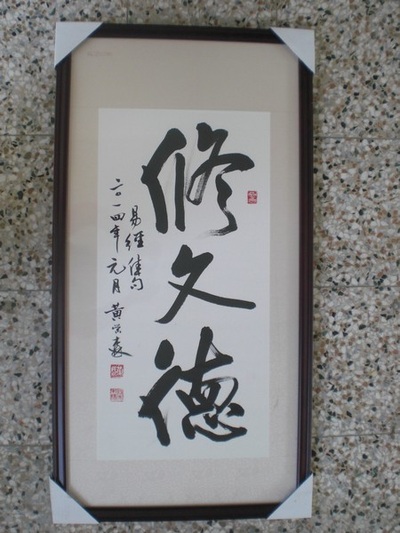 修文德
易經佳句
二〇一四年元月黃